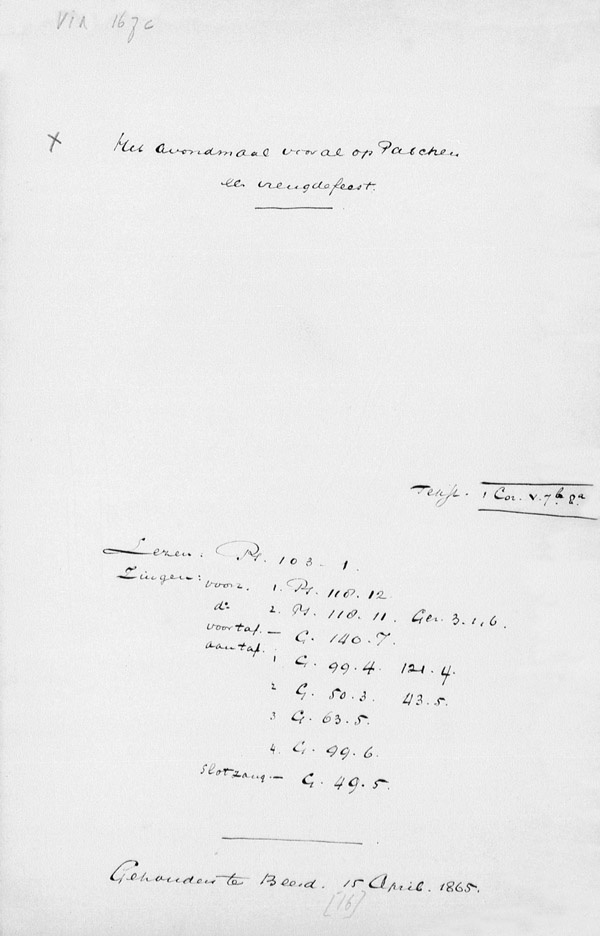 VIA 167c
X Het avondmaal vooral op Paschen
een vreugdefeest.
Tekst. 1 Cor. V. 7b 8a
Lezen: Ps. 103 - 1.
Zingen: voorz. 1. Ps. 118. 12
do 2. Ps. 118. 11. Gez. 3. 1, 6.
voor taf. — G. 140. 7.
aan taf. 1 G. 99. 4. 121. 4.
2 G. 50. 3. 43. 5.
3 G. 63. 5.
4. G. 99. 6.
Slotzang. — G. 49. 5.
Gehouden te Beesd. 15 April. 1865.
[16]